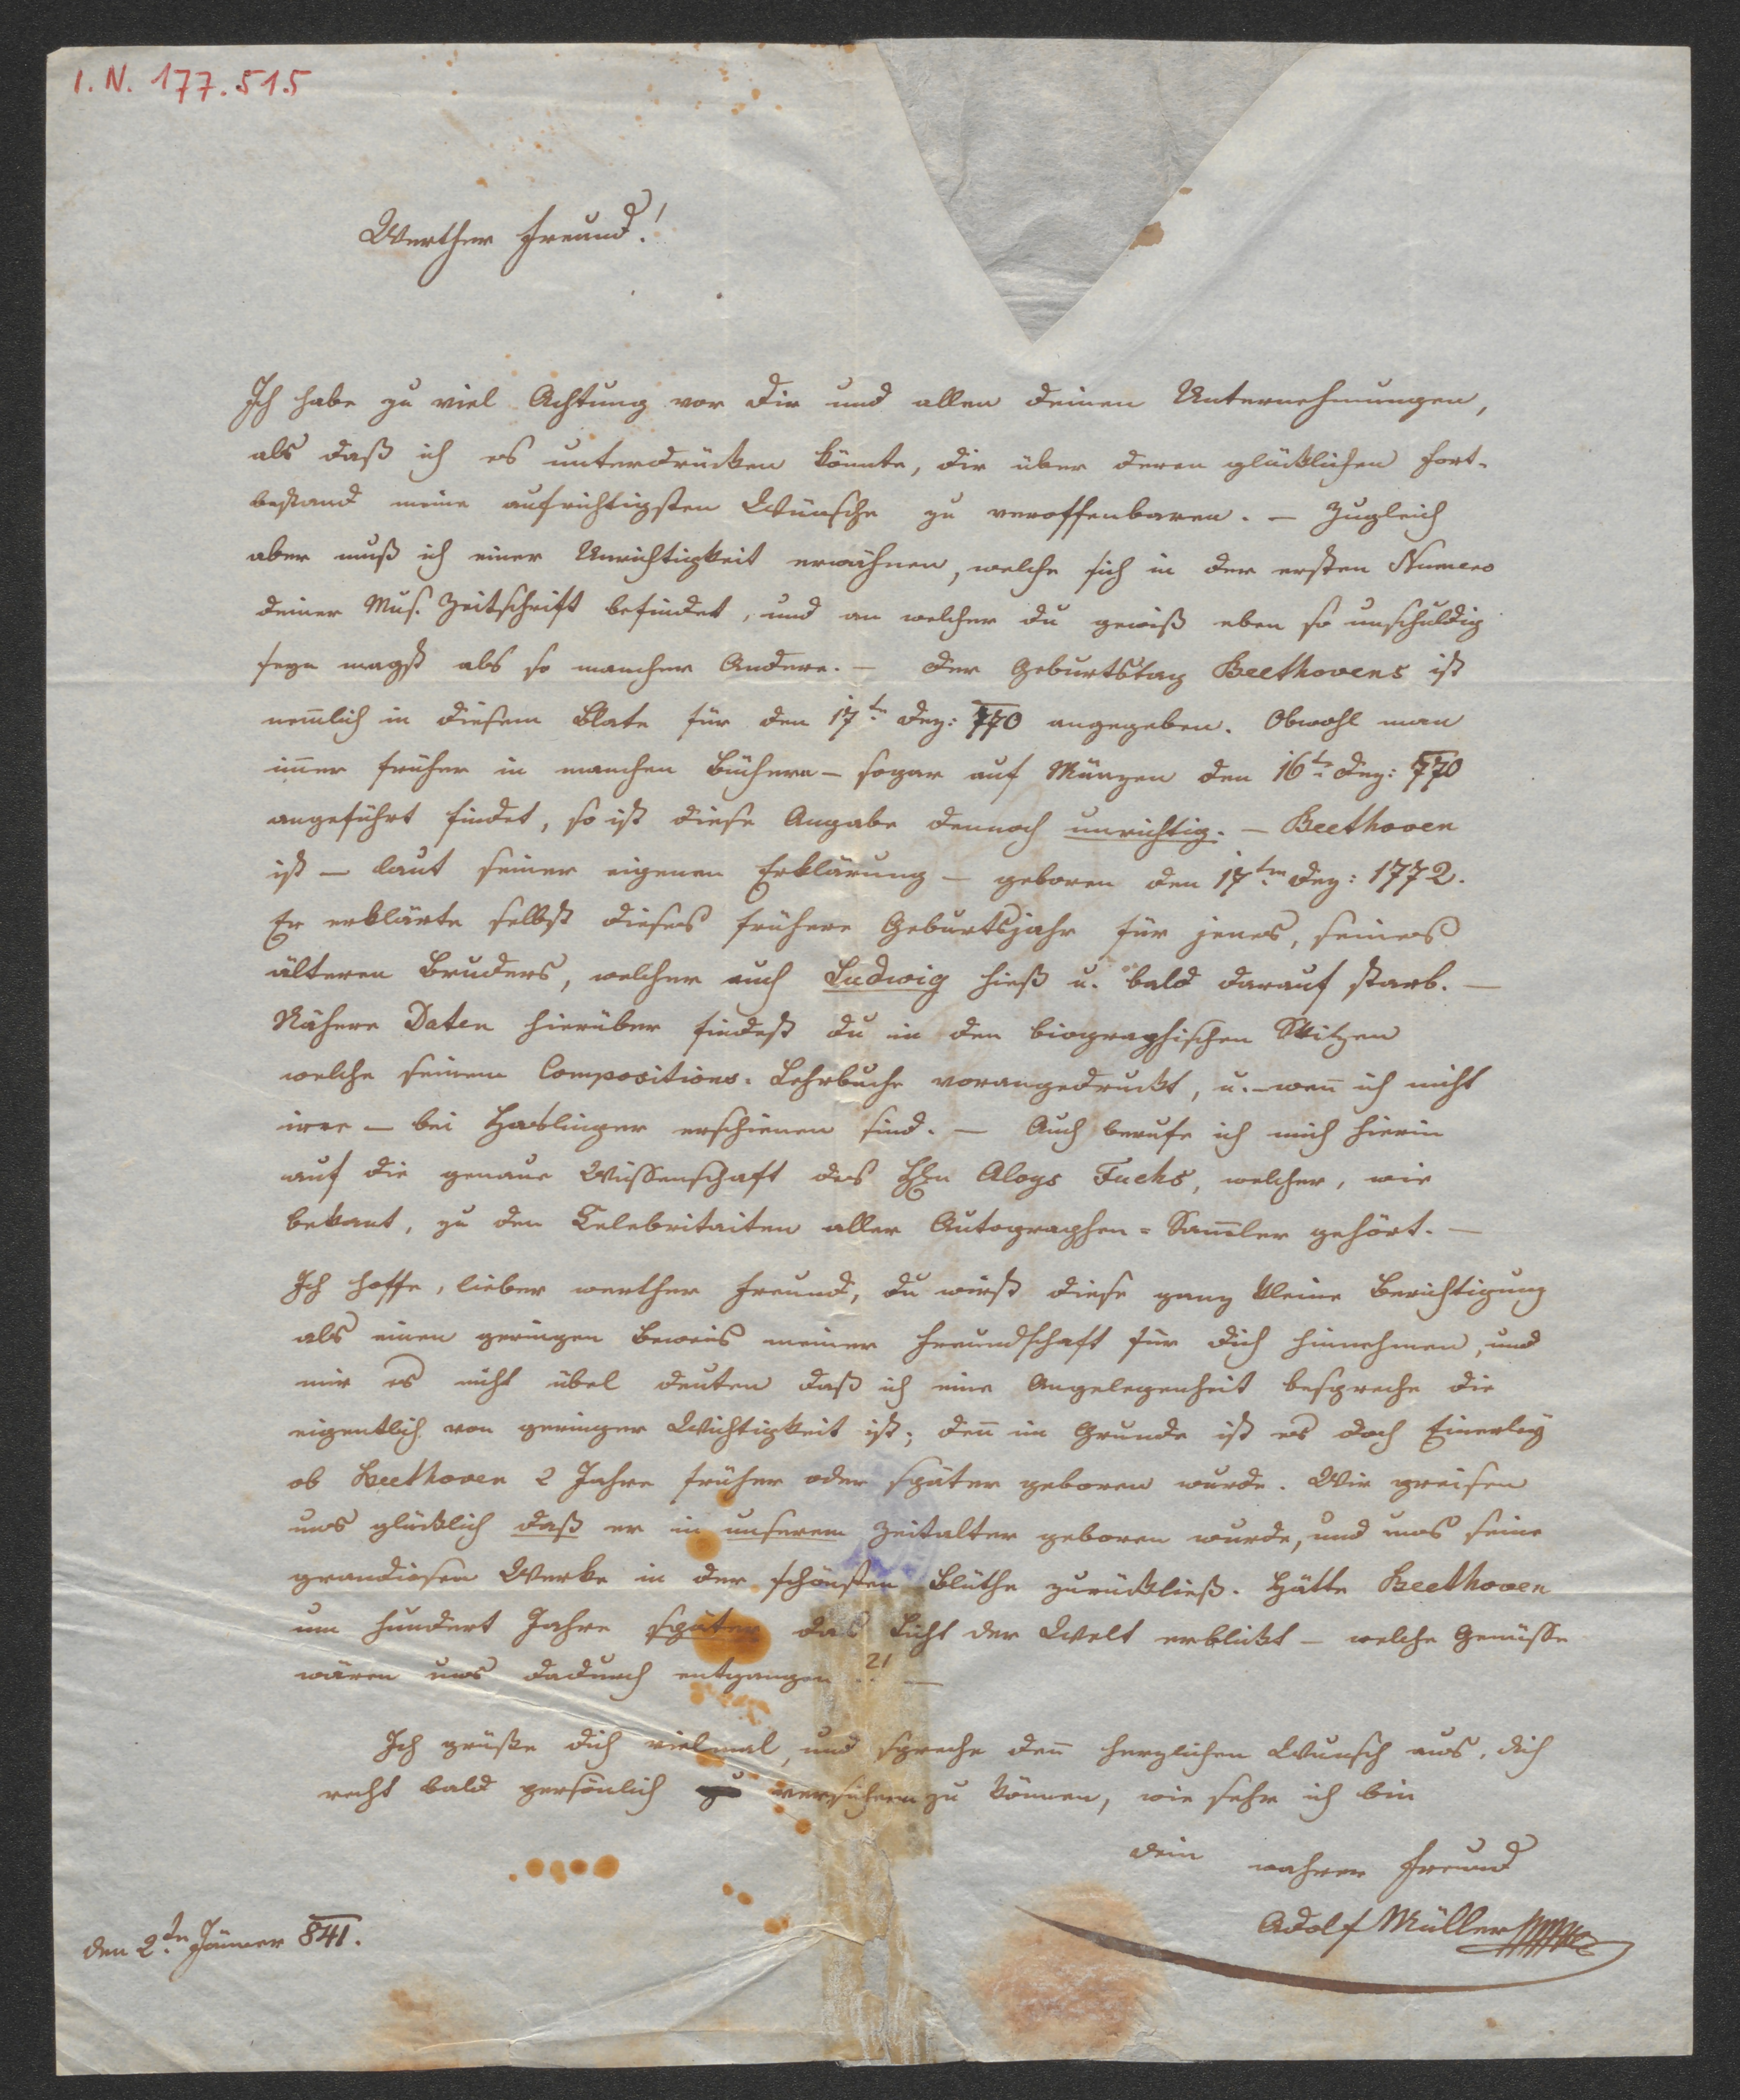 I. N. 177.515
Werther Freund!
Ich habe zu viel Achtung vor Dir und allen Deinen Unternehmungen,
als daß ich es unterdrücken könnte, Dir über deren glücklichen Fort-
bestand meine aufrichtigsten Wünsche zu veroffenbaren. — Zugleich
aber muß ich einer Unrichtigkeit erwähnen, welche sich in der ersten Numero
Deiner Mus. Zeitschrift befindet, und an welcher Du gewiß eben so unschuldig
seyn magst als so mancher Andere. — Der Geburtstag Beethovens ist
nem̄lich in diesem Blate für den 17tn Dez: 770 angegeben. Obwohl man
im̄er früher in manchen Büchern — sogar auf Münzen den 16tn Dez: 770
angeführt findet, so ist diese Angabe dennoch unrichtig. — Beethoven
ist — laut seiner eigenen Erklärung — geboren den 17tn Dez: 1772.
Er erklärte selbst dieses frühere Geburtsjahr für jenes, seines
älteren Bruders, welcher auch Ludwig hieß u. bald darauf starb. —
Nähere Daten hierüber findest Du in den biographischen Skitzen
welche seinem Compositions-Lehrbuche vorangedruckt, u. — wen̄ ich nicht
irre — bei Haslinger erschienen sind. — Auch berufe ich mich hierin
auf die genaue Wissenschaft des Hrn Aloys Fuchs, welcher, wie
bekant, zu den Celebritaiten aller Autographen-Sam̄ler gehört. —
Ich hoffe, lieber werther Freund, Du wirst diese ganz kleine Berichtigung
als einen geringen Beweis meiner Freundschaft für Dich hinnehmen, und
mir es nicht übel deuten daß ich eine Angelegenheit bespreche die
eigentlich von geringer Wichtigkeit ist; den̄ im Grunde ist es doch Einerley
ob Beethoven 2 Jahre früher oder später geboren wurde. Wir preisen
uns glücklich daß er in unserem Zeitalter geboren wurde, und uns seine
grandiosen Werke in der schönsten Blüthe zurückließ. Hätte Beethoven
um hundert Jahre später das Licht der Welt erblickt — welche Genüsse
wären uns dadurch entgangen ?! —
Ich grüße Dich vielmal, und spreche den̄ herzlichen Wunsch aus, Dich
recht bald persönlich versichern zu können, wie sehr ich bin
Dein wahrer Freund
Adolf Müller
Den 2tn Jänner 841.